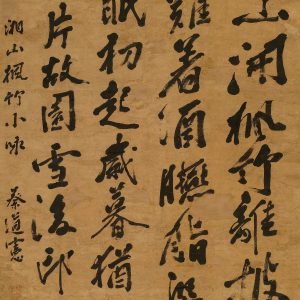 楓竹離披
着酒臙脂
眠初起歲暮猶
片故園雪後
湘山楓竹小咏 蔡道憲